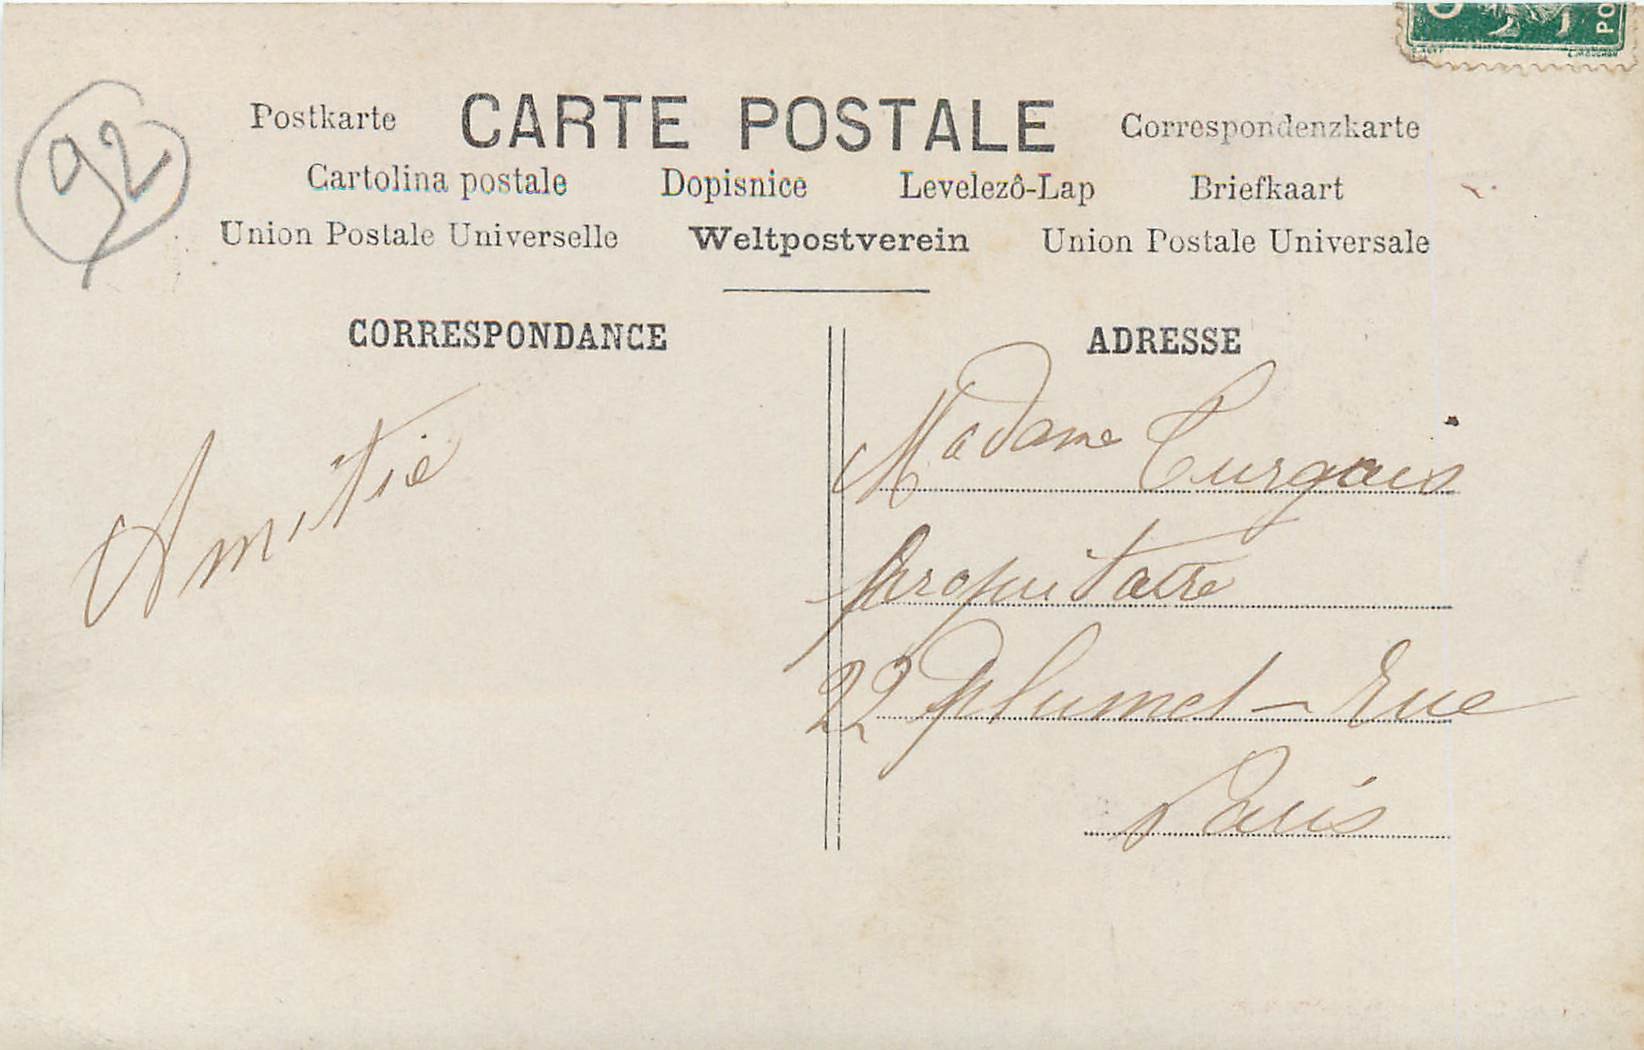 92
Postkarte CARTE POSTALE Correspondenzkarte
Cartolina postale Dopisnice Levelezô-Lap Briefkaart
Union Postale Universelle Weltpostverein Union Postale Universale
CORRESPONDANCE
Amitié
ADRESSE
Madame
propritaire
22 Plumet-Rue
Paris
PO